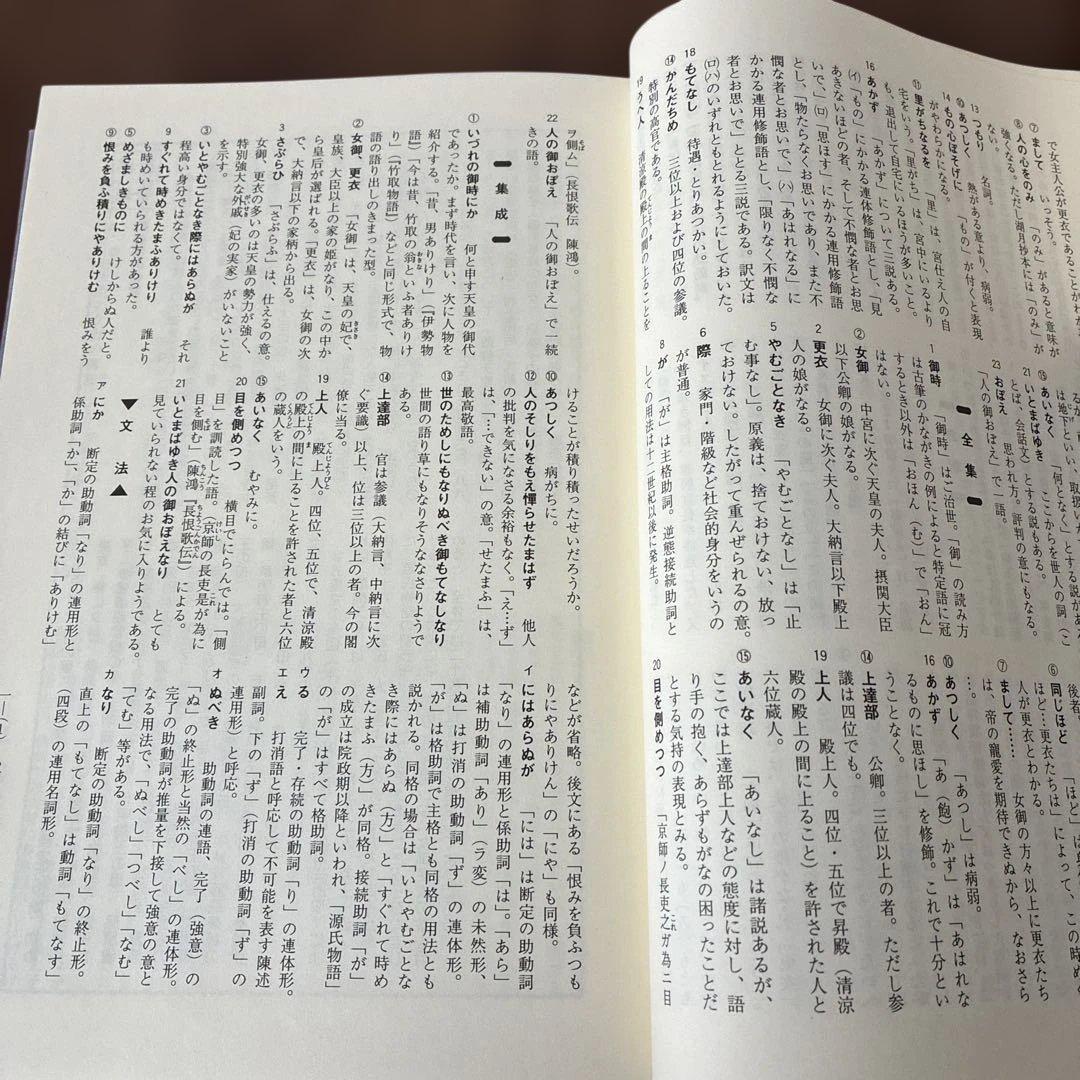 で女主人公が更衣であること
⑦まして　いっそう。
⑧人の心をのみ　「のみ」があると意味が
強くなる。ただし湖月抄本には「のみ」が
ない。
13 つもり　名詞。
⑩あつしく　熱がある意より、病弱。
14 もの心ぼそげに　「もの」が付くと表現
がやわらかになる。
⑪里がちなるを　「里」は、宮仕え人の自
宅をいう。「里がち」は、宮中にいるより
も、退出して自宅にいるほうが多いこと。
16 あかず　「あかず」について三説ある。
㋑「もの」にかかる連体修飾語とし、「見
あきないほどの者、そして不憫な者とお思
いで、」㋺「思ほす」にかかる連用修飾語
とし、「物たらなくお思いであり、また不
憫な者とお思いで、」㋩「あはれなる」に
かかる連用修飾語とし、「限りなく不憫な
者とお思いで」ととる三説である。訳文は
㋺㋩のいずれともとれるようにしておいた。
18 もてなし　待遇・とりあつかい。
⑭かんだちめ　三位以上および四位の参議。
特別の高官である。
19 うへ人　清涼殿の殿上の間に上ることを
⑮あいなく　「何となく」とする説があ
は地下といい、取扱い
21 いとまばゆき　ここからを世人の詞（こ
とば、会話文）とする説もある。
23 おぼえ　思われ方。評判の意にもなる。
「人の御おぼえ」で一語。
全集
1 御時　「御時」はご治世。「御」の読み方
は古筆のかながきの例によると特定語に冠
するとき以外は「おほん（む）」で「おん」
ではない。
②女御　中宮に次ぐ天皇の夫人。摂関大臣
以下公卿の娘がなる。
2 更衣　女御に次ぐ夫人。大納言以下殿上
人の娘がなる。
5 やむごとなき　「やむごとなし」は「止
む事なし」。原義は、捨てておけない、放っ
ておけない。したがって重んぜられるの意。
6 際　家門・階級など社会的身分をいうの
が普通。
8 が　「が」は主格助詞。逆態接続助詞と
しての用法は十二世紀以後に発生。
⑥同じほど　「ほど」は
ほど…更衣たちは」によって、この
人が更衣とわかる。
⑦まして……　女御の方々以上に更衣たち
は、帝の寵愛を期待できぬから、なおさら
…。
⑩あつしく　「あつし」は病弱。
16 あかず　「あ（飽）かず」は「あはれな
るものに思ほし」を修飾。これで十分とい
うことなく。
⑭上達部　公卿。三位以上の者。ただし参
議は四位でも。
19 上人　殿上人。四位・五位で昇殿（清涼
殿の殿上の間に上ること）を許された人と
六位蔵人。
⑮あいなく　「あいなし」は諸説あるが、
ここでは上達部上人などの態度に対し、語
り手の抱く、あらずもがなの困ったことだ
とする気持の表現とみる。
20 目を側めつつ　「京師ノ長吏之ガ為ニ目
ヲ側ム」（長恨歌伝　陳鴻）。
22 人の御おぼえ　「人の御おぼえ」で一続
きの語。
集成
①いづれの御時にか　何と申す天皇の御代
であったか。まず時代を言い、次に人物を
紹介する。「昔、男ありけり」（『伊勢物
語』）「今は昔、竹取の翁といふ者ありけ
り」（『竹取物語』）などと同じ形式で、物
語の語り出しのきまった型。
②女御、更衣　「女御」は、天皇の妃で、
皇族、大臣以上の家の姫がなり、この中か
ら皇后が選ばれる。「更衣」は、女御の次
で、大納言以下の家柄から出る。
3 さぶらひ　「さぶらふ」は、仕えるの意。
女御、更衣の多いのは天皇の勢力が強く、
特別強大な外戚（妃の実家）がいないこと
を示す。
③いとやむごとなき際にはあらぬが　それ
程高い身分ではなくて。
9 すぐれて時めきたまふありけり　誰より
も時めいていられる方があった。
⑤めざましきものに　けしからぬ人だと。
⑨恨みを負ふ積りにやありけむ　恨みをう
けることが積り積ったせいだろうか。
⑩あつしく　病がちに。
⑫人のそしりをもえ憚らせたまはず　他人
の批判を気になさる余裕もなく。「え…ず」
は、「…できない」の意。「せたまふ」は、
最高敬語。
⑬世のためしにもなりぬべき御もてなしなり
世間の語り草にもなりそうななさりようで
ある。
⑭上達部　官は参議（大納言、中納言に次
ぐ要識）以上、位は三位以上の者。今の閣
僚に当る。
19 上人　殿上人。四位、五位で、清涼殿
の殿上の間に上ることを許された者と六位
の蔵人をいう。
⑮あいなく　むやみに。
20 目を側めつつ　横目でにらんでは。「側
目」を訓読した語。「京師の長吏是が為に
目を側む」（陳鴻『長恨歌伝』）による。
21 いとまばゆき人の御おぼえなり　とても
見ていられない程のお気に入りようである。
▼文法▲
ア にか　断定の助動詞「なり」の連用形と
係助詞「か」、「か」の結びに「ありけむ」
などが省略。後文にある「恨みを負ふつも
りにやありけん」の「にや」も同様。
イ にはあらぬが　「には」は断定の助動詞
「なり」の連用形と係助詞「は」。「あら」
は補助動詞「あり」（ラ変）の未然形、
「ぬ」は打消の助動詞「ず」の連体形。
「が」は格助詞で主格とも同格の用法とも
説かれる。同格の場合は「いとやむごとな
き際にはあらぬ（方）」と「すぐれて時め
きたまふ（方）」が同格。接続助詞「が」
の成立は院政期以降といわれ、「源氏物語」
の「が」はすべて格助詞。
ウ る　完了・存続の助動詞「り」の連体形。
エ え　打消語と呼応して不可能を表す陳述
副詞。下の「ず」（打消の助動詞「ず」の
連用形）と呼応。
オ ぬべき　助動詞の連語、完了（強意）の
「ぬ」の終止形と当然の「べし」の連体形。
完了の助動詞が推量を下接して強意の意と
なる用法で、「ぬべし」「つべし」「なむ」
「てむ」等がある。
カ なり　断定の助動詞「なり」の終止形。
直上の「もてなし」は動詞「もてなす」
（四段）の連用名詞形。